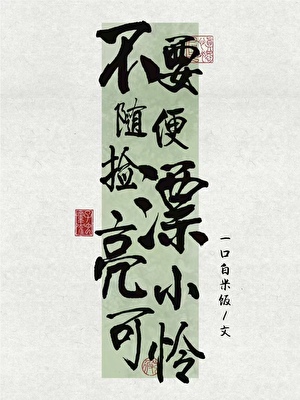 不要
随便
捡漂
亮小
可怜
一口白米饭/文